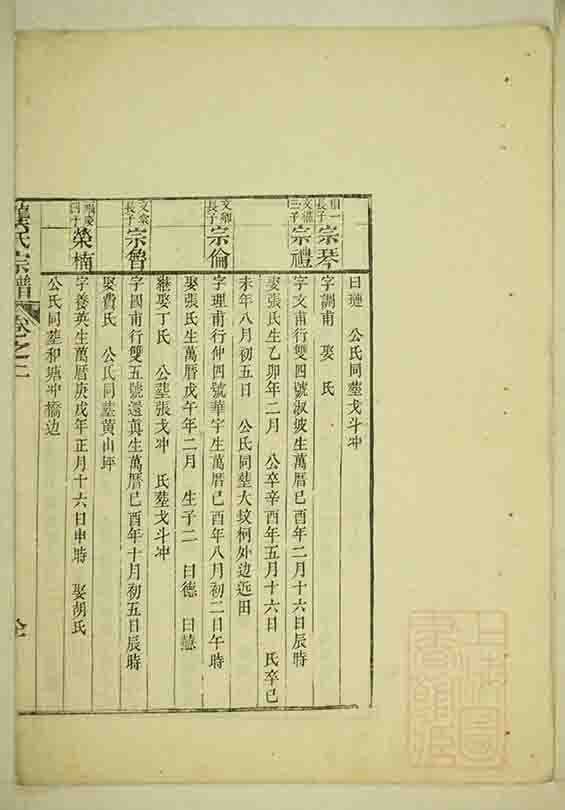 曰璉 公氏同塟戈斗冲
長子 宗琴 字調甫 娶 氏
三子 宗禮 字文甫行雙四號淑坡生萬曆己酉年二月十六日辰時
娶張氏生乙卯年二月 公卒辛酉年五月十六日 氏卒己
未年八月初五日 公氏同塟大坟柯外边远田
文卿長子 宗倫 字理甫行仲四號華宇生萬曆己酉年八月初二日午時
娶張氏生萬曆戊午年二月 生子二 曰德 曰慧
継娶丁氏 公塟張戈冲 氏塟戈斗冲
長子 宗魯 字國甫行雙五號還真生萬曆己酉年十月初五日辰時
娶費氏 公氏同塟黄山坪
四十 榮楠 字養英生萬曆庚戌年正月十六日申時 娶胡氏
公氏同塟和塘冲橋边
氏宗譜 卷之二
上海圖書館藏